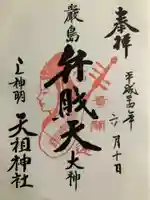 奉拝
平成廿四年
六月十日
厳島
弁財天
大神
上神明
天祖神社